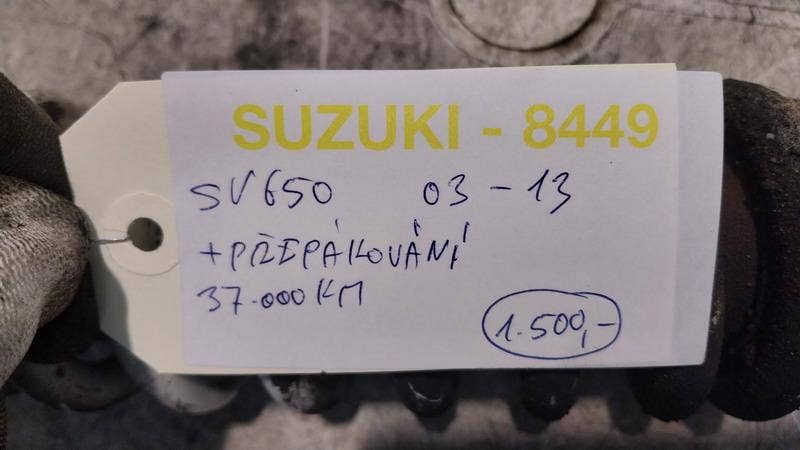 SUZUKI - 8449
SV650 03 - 13
+PŘEPÁKOVÁNÍ
37.000 KM
1.500,-